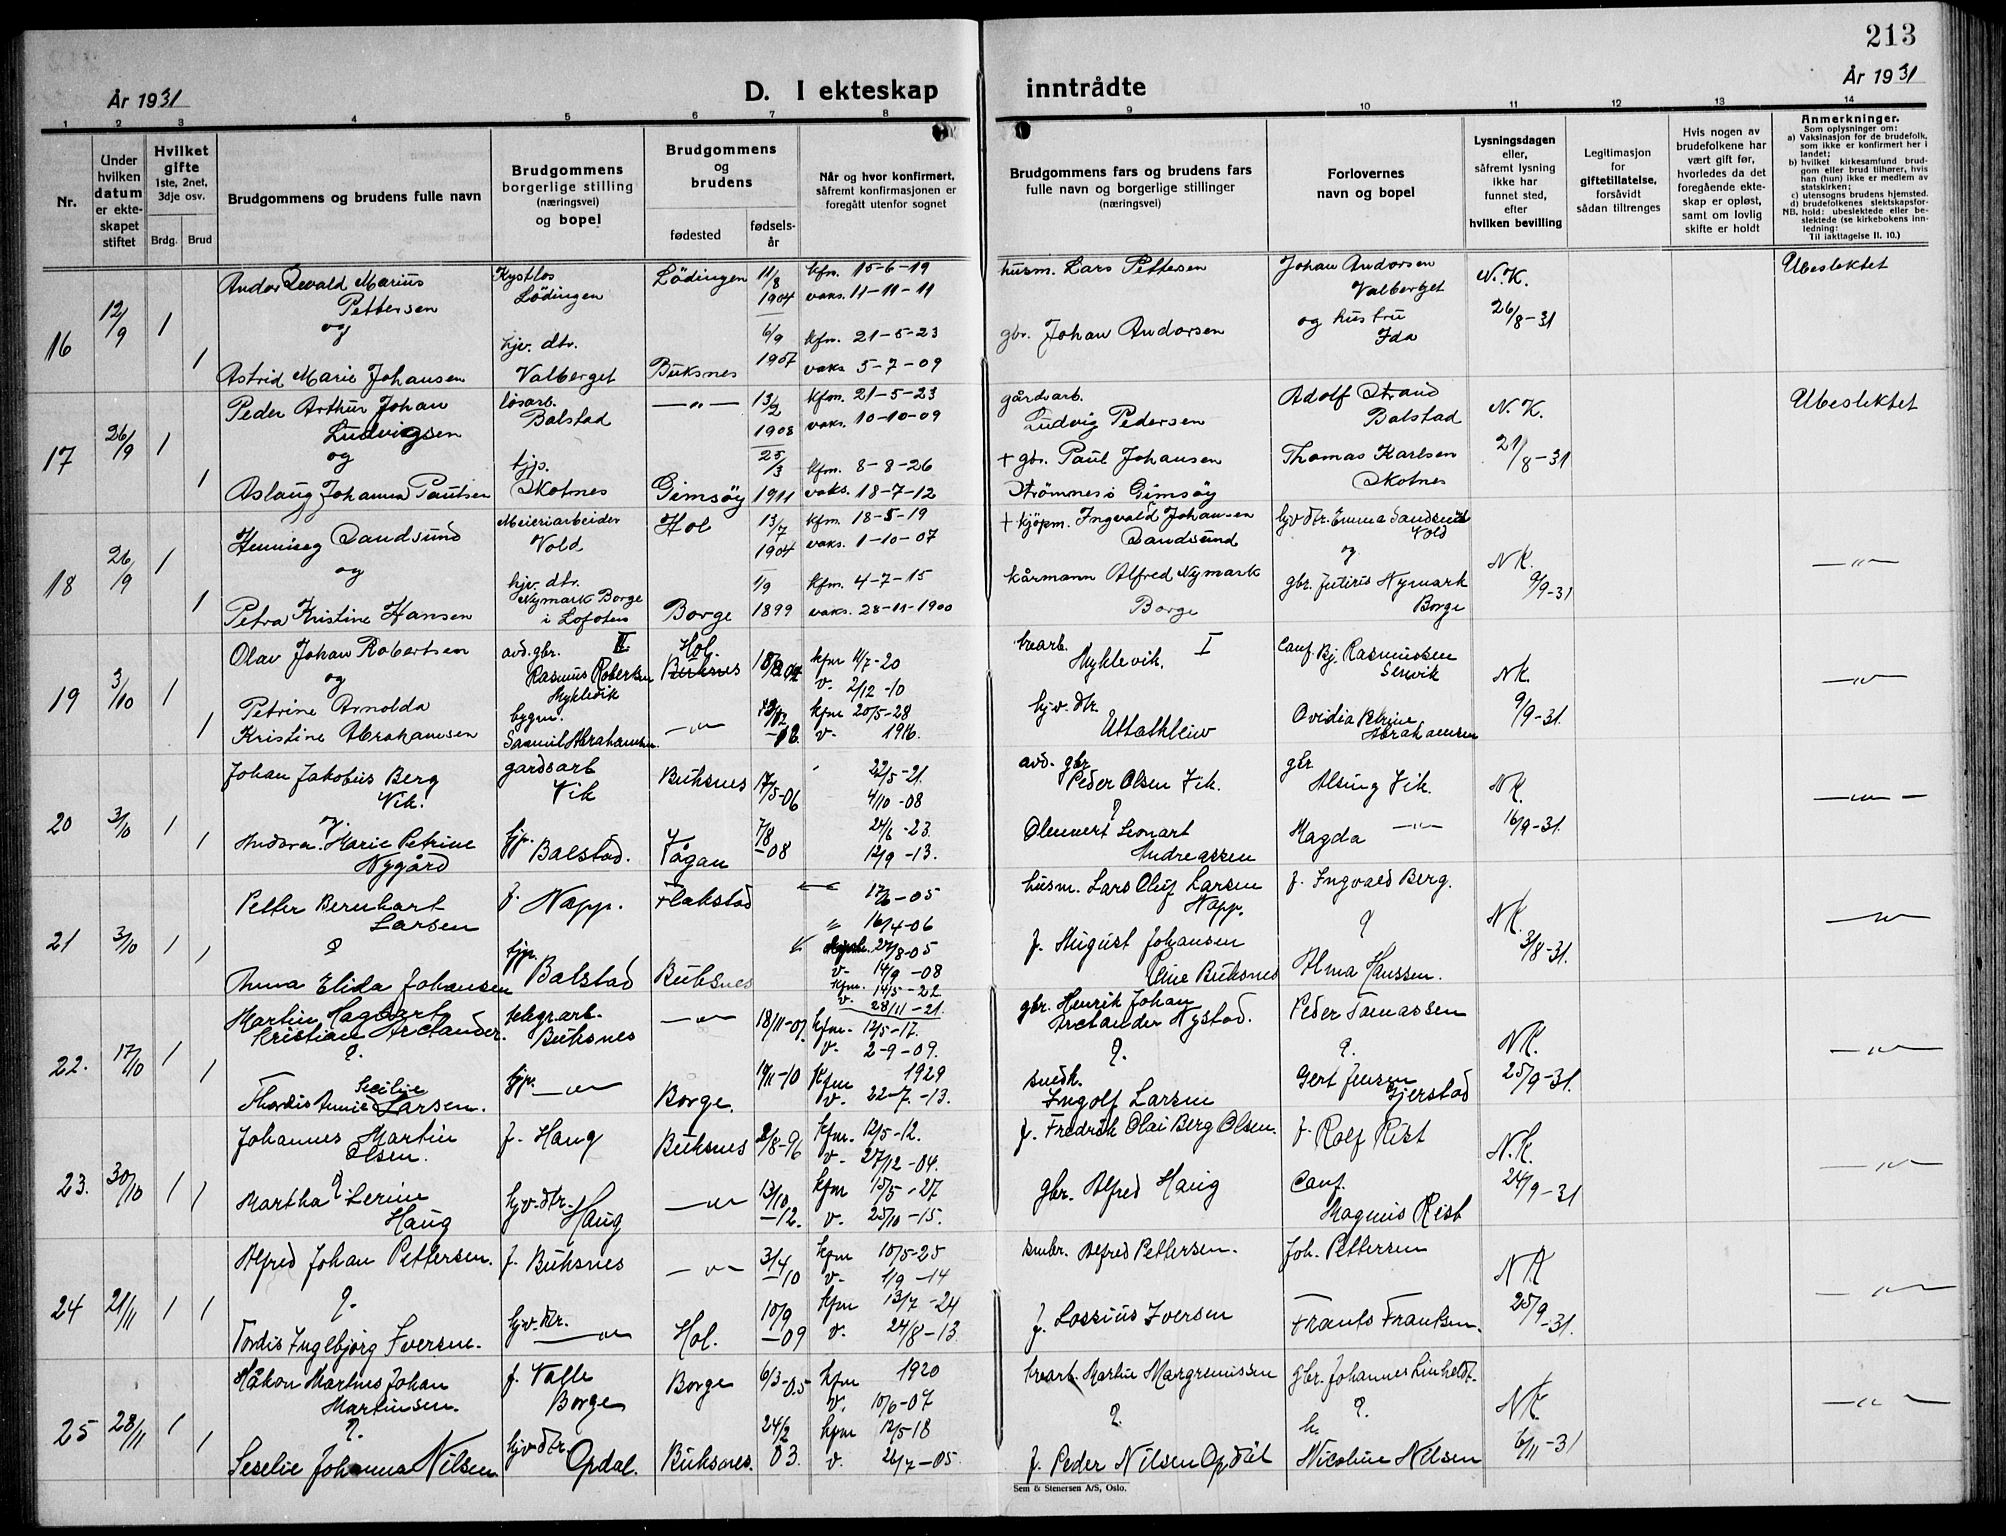 213
År 1931
D. I ekteskap inntrådte
År 1931
1 2 3 4 5 6 7 8 9 10 11 12 13 14
Nr.
Under hvilken datum er ekteskapet stiftet
Hvilket gifte 1ste, 2net, 3dje osv.
Brdg. Brud
Brudgommens og brudens fulle navn
Brudgommens borgerlige stilling (næringsvei) og bopel
Brudgommens og brudens
fødested
fødselsår
Når og hvor konfirmert, såfremt konfirmasjonen er foregått utenfor sognet
Brudgommens fars og brudens fars fulle navn og borgerlige stillinger (næringsvei)
Forlovernes navn og bopel
Lysningsdagen eller, såfremt lysning ikke har funnet sted, efter hvilken bevilling
Legitimasjon for giftetillatelse, forsåvidt sådan tiltrenges
Hvis nogen av brudefolkene har vært gift før, hvorledes da det foregående ekteskap er opløst, samt om lovlig skifte er holdt
Anmerkninger.
Som oplysninger om:
a) Vaksinasjon for de brudefolk, som ikke er konfirmert her i landet;
b) hvilket kirkesamfund brudgom eller brud tilhører, hvis han (hun) ikke er medlem av statskirken;
c) utensogns brudens hjemsted.
d) brudefolkenes slektskapsforhold: ubeslektede eller beslektede (se kirkebokens innledning:
NB.
Til iakttagelse II. 10.)
16 12/9 1 Marius Pettersen Lödingen Lödingen 11/8 1904 kfm. 15-6-19 vaks. 11-11-11 husm. Lars Pettersen Johan Andorsen Valberget N.K. 26/8-31 Ubeslektet
og
1 Astrid Marie Johansen hjv. dtr. Valberget Buksnes 6/9 1907 kfm. 21-5-23 vaks. 5-7-09 gbr. Johan Andorsen og hustru Ida
17 26/9 1 Peder Arthur Johan Ludvigsen løsarb. Balstad —"— 13/2 1908 kfm. 21-5-23 vaks. 10-10-09 gårdsarb. Ludvig Pedersen Adolf Strand Balstad N.K. 21/8-31 Ubeslektet
og
1 Aslaug Johanna Paulsen tjp. Skotnes Gimsöy 25/3 1911 kfm. 8-8-26 vaks. 18-7-12 + gbr. Paul Johansen Strömnes i Gimsöy Thomas Karlsen Skotnes
18 26/9 1 Henning Sandsund Meieriarbeider Vold Hol 13/7 1904 kfm. 18-5-19 vaks. 1-10-07 + kjöpm. Ingvald Johansen Sandsund hjv dtr. Emma Sandsund Vold NK. 9/9-31 —"—
og
1 Petra Kristine Hansen hjv. dtr. Nymark Borge i Lofoten Borge 1/9 1899 kfm. 4-7-15 vaks. 28-11-1900 kårmann Alfred Nymark Borge og gbr. Nymark Borge
19 3/10 1 Olav Johan Robertsen avd. gbr. II Rasmus Robertsen Myklevik Hol. Buksnes kfm 11/7-20 v. 2/12-10 Myklevik. I Rasmussen NK. 9/9-31. —"—
og
1 Petrine Arnolda Kristine Abrahamsen Samuel Abrahamsen. —"— kfm 20/5-28 v. 1916. hjv. dtr. Ovidia Petrine Abrahamsen
20 3/10 1 Johan Jakobus Berg Vik. gardsarb Vik Buksnes 17/5-06 22/5-21. 4/10-08 avd. gbr Peder Olsen Vik. gbr Vik. NK. 16/9-31. —"—
og.
1 Andora Marie Petrine Nygård tjp. Balstad. Vågan 7/8-08 24/6-23. 12/9-13. Andreassen Magda —"—
21 3/10 1 Petter Bernhart Larsen f. Napp. Flakstad 17/6-05 16/4-06 husm. Lars Oluf Larsen Napp. f. Ingvald Berg. NK. 3/8-31. —"—
1 Anna Elida Johansen tjp. Balstad Buksnes 27/8-05 v- 14/9-08 kfm. 14/5-22 v. 28/11-21. f. August Johansen Buksnes Alma Hanssen.
22. 17/10 1 Martin Hagbart Kristian Arctander. telegr.arb. Buksnes —"— 18/11-07. kfm. 12/5-17. v. 2-9-09. gbr. Henrik Johan Arctander Nystad. Peder Tomassen NK. 25/9-31. —"—
1 Thordis Annie Secilie Larsen. tjp. —"— Borge. 19/11-10 Kfm 1929 v. 22-7-13. smedk. Ingolf Larsen Gert Jensen Gjerstad
23. 30/10 1 Johannes Martin Olsen. f. Haug Buksnes 2/8-96 kfm. 12/5-12. v- 27/12-04. f. Fredrik Olai Berg Olsen. f Rolf Rist N.K. 24/9-31 —"—
1 Martha Lerine Haug hjv. dtr. Haug —"— 13/10-12. kfm 15/5-27 v. 25/10-15. gbr. Alfred Haug Magnus Rist
24 21/11 1 Alfred Johan Pettersen. f. Buksnes —"— 3/4-10 kfm 10/5-25 v- 1/9-14 smbr. Alfred Pettersen. Joh. Pettersen NK 25/9-31. —"—
1 Tordis Ingebjørg Iversen. hjv. dtr. —"— Hol. 10/9-09 kfm 13/7-24 v. 24/8-13. f. Lossius Iversen Frants Frantsen.
25 28/11 1 Håkon Martnus Johan Martinsen. f. Valle Borge Borge 6/3-05 kfm 1920 v. 10/6-07 Martin Margremissen gbr. Johannes NK. 6/11-31 —"—
1 Seselie Johanna Nilsen hjv dtr. Opdal. Buksnes. 24/2 03. kfm 12/5-18 v. 26/7-05. f. Peder Nilsen Opdöl Nicoline Nilsen
Sem & Stenersen A/S, Oslo.